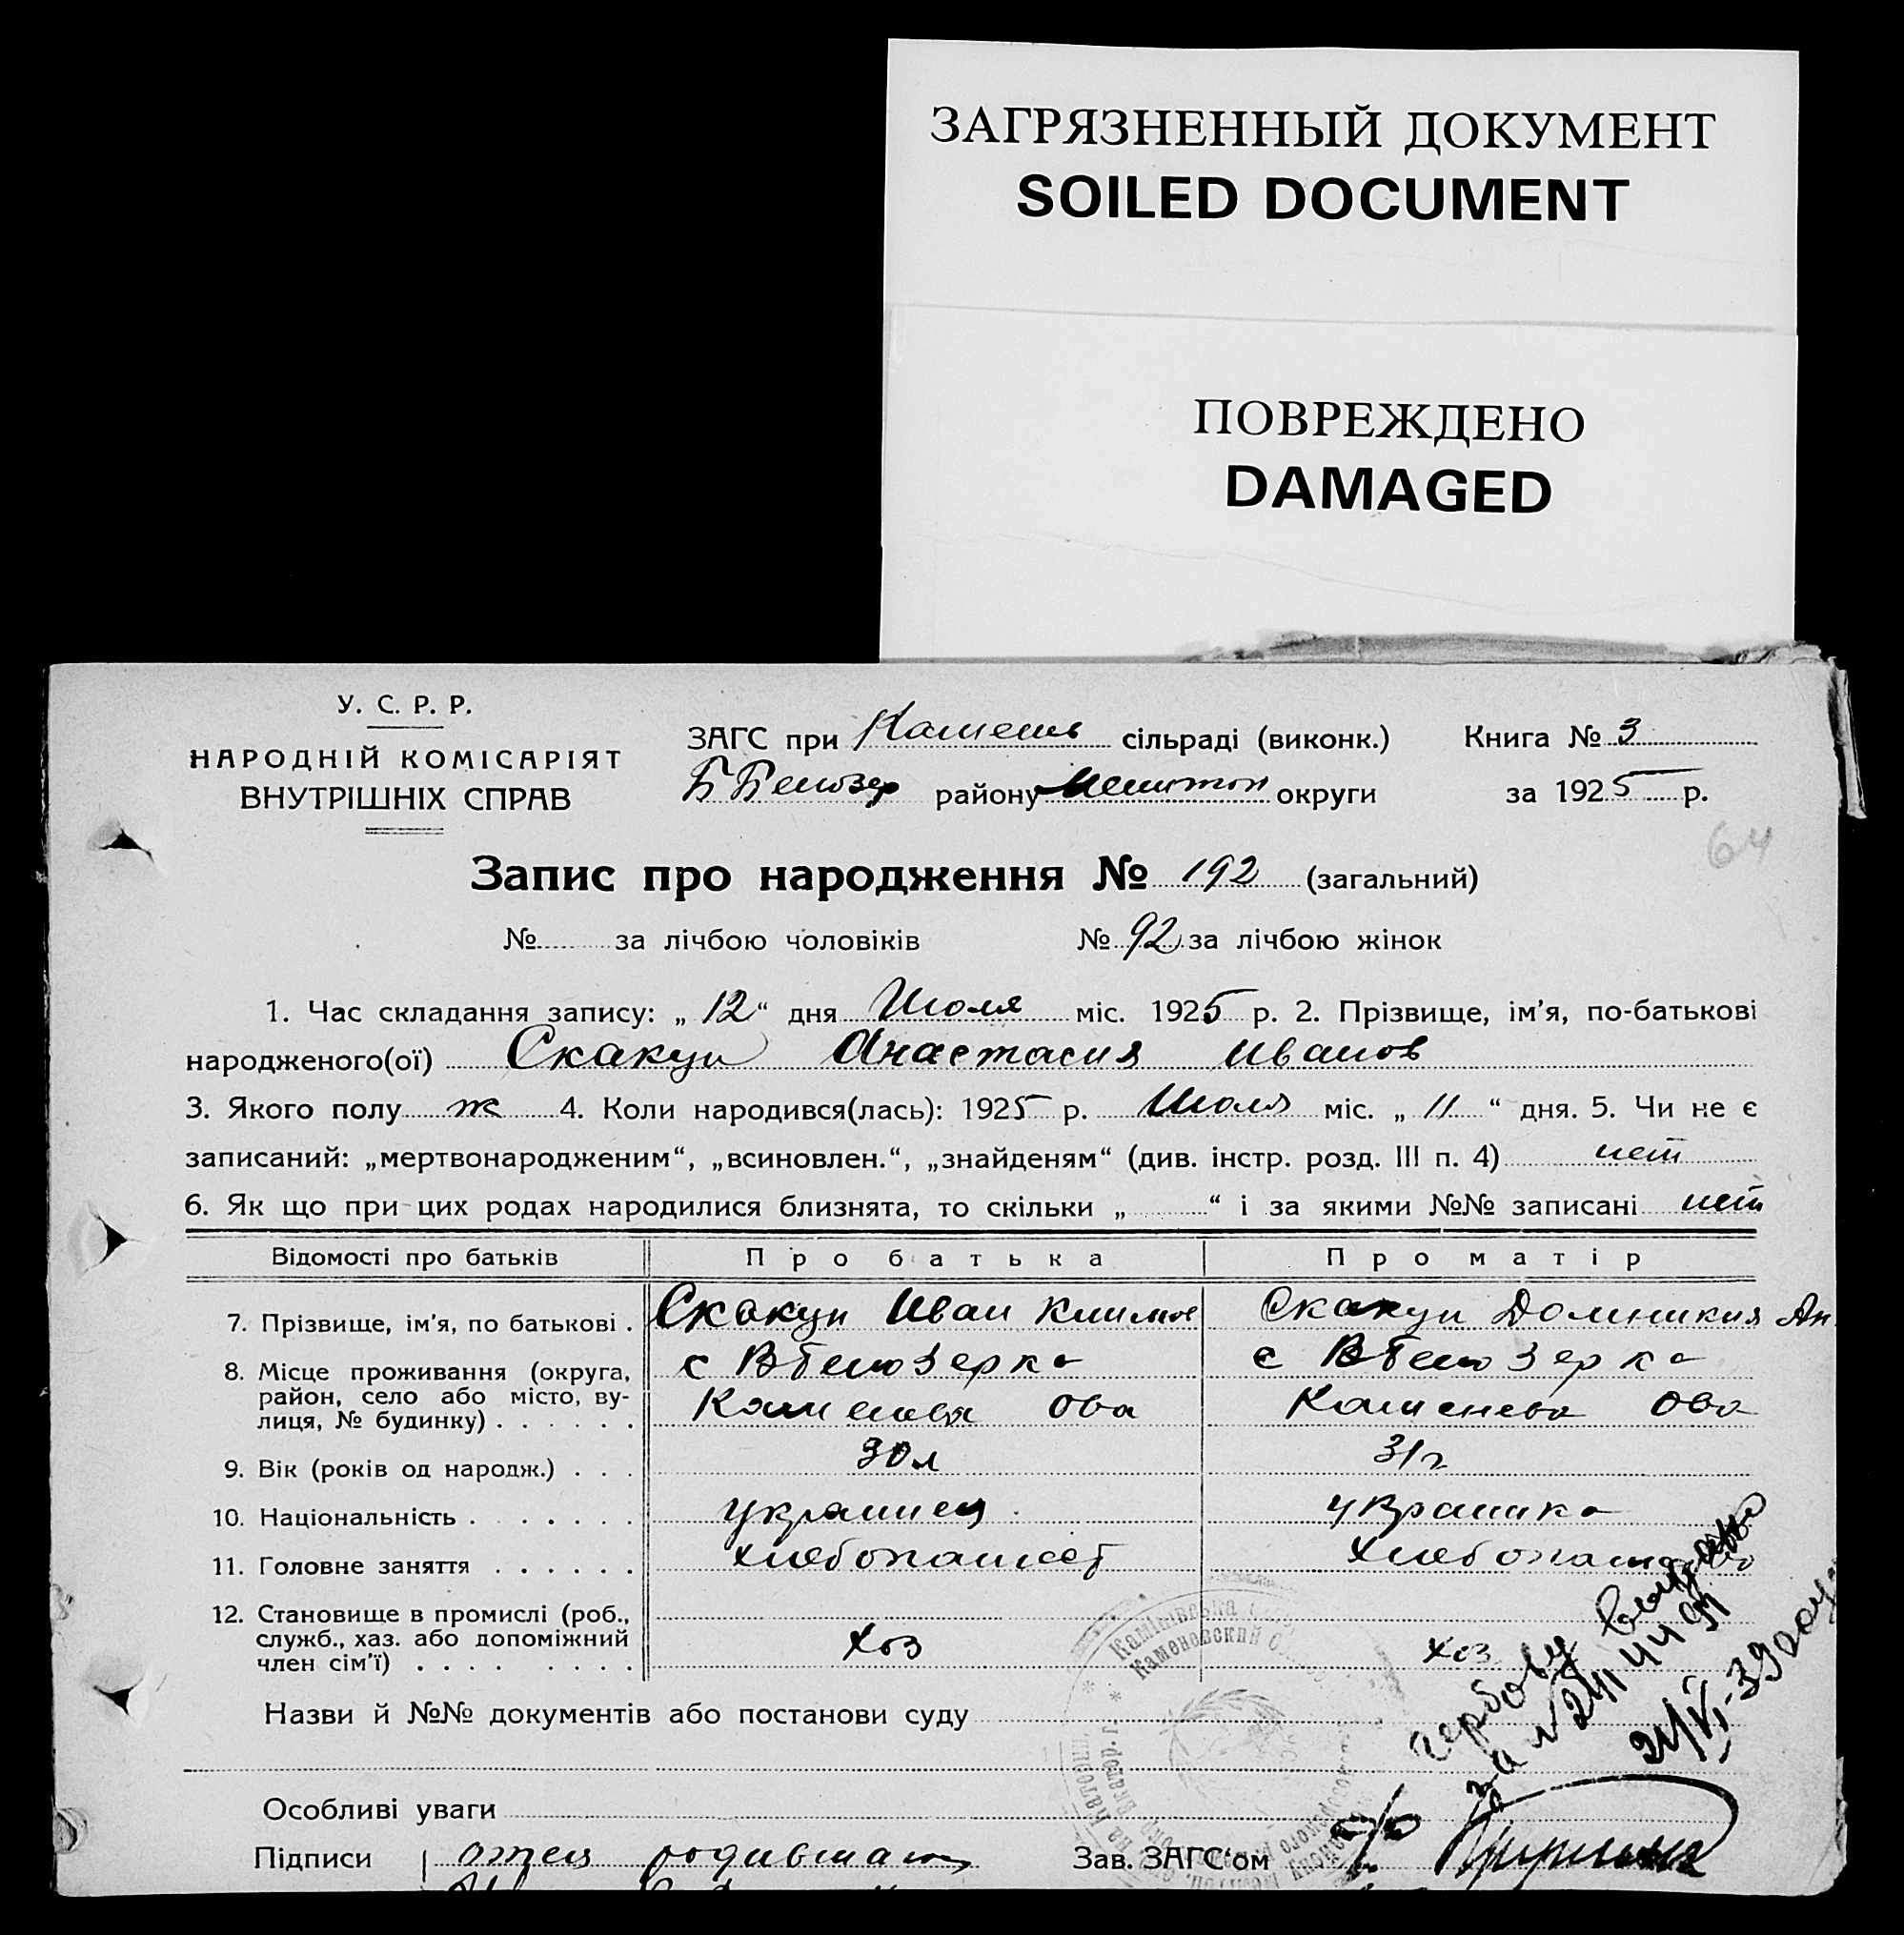 ЗАГРЯЗНЕННЫЙ ДОКУМЕНТ
SOILED DOCUMENT
ПОВРЕЖДЕНО
DAMAGED
У. С. Р. Р.
НАРОДНІЙ КОМІСАРІЯТ
ВНУТРІШНІХ СПРАВ
ЗАГС при Камень сільраді (виконк.)
Б Белозер району Мелитоп округи
Книга № 3
за 1925 р.
64
Запис про народження № 192 (загальний)
№ за лічбою чоловіків № 92 за лічбою жінок
1. Час складання запису: „12“ дня Июля міс. 1925 р. 2. Прізвище, ім’я, по-батькові
народженого(ої) Скакун Анастасия Иванов
3. Якого полу ж 4. Коли народився(лась): 1925 р. Июля міс. „11“ дня. 5. Чи не є
записаний: „мертвонародженим“, „всиновлен.“, „знайденям“ (див. інстр. розд. III п. 4) нет
6. Як що при цих родах народилися близнята, то скільки „ “ і за якими №№ записані нет
Відомості про батьків Про батька Про матір
7. Прізвище, ім’я, по батькові . Скакун Иван Климов Скакун Домникия Ан
8. Місце проживання (округа, с ВБелозерка с ВБелозерка
район, село або місто, ву-
лиця, № будинку) . . . . . . Каменева Ова Каменева Ова
9. Вік (років од народж.) . . . 30л 31г
10. Національність . . . . . . . украинец украинка
11. Головне заняття . . . . . . хлебопашест хлебопашество
12. Становище в промислі (роб.,
служб., хаз. або допоміжний хоз хоз
член сім’ї) . . . . . . . .
Назви й №№ документів або постанови суду
Особливі уваги
Підписи отец
Зав. ЗАГС‘ом
Камінівська
Каменовский
гербову выдано
за № 2411449
21/VI-39